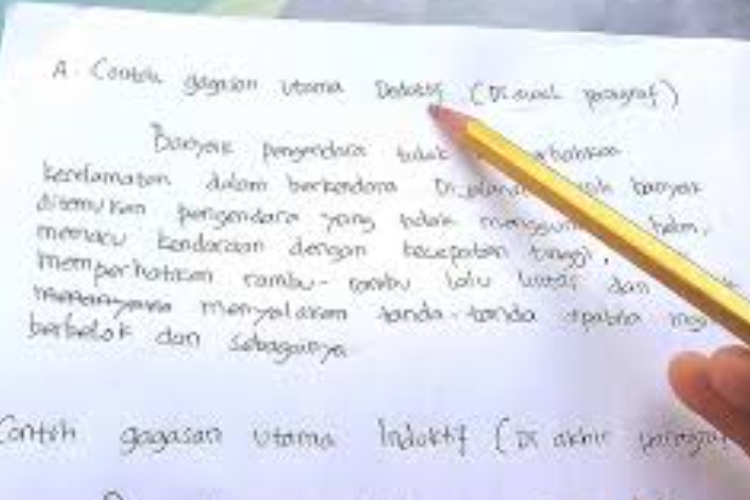 A. Contoh gagasan utama Deduktif (Di awal paragraf)
Banyak pengendara tidak
keselamatan dalam berkendara Di banyak
ditemukan pengendara yang tidak helm,
memacu kendaraan dengan kecepatan tinggi,
memperhatikan rambu-rambu lalu lintas dan
menyalakan tanda-tanda apabila
berbelok dan sebagainya
Contoh gagasan utama Induktif (Di akhir